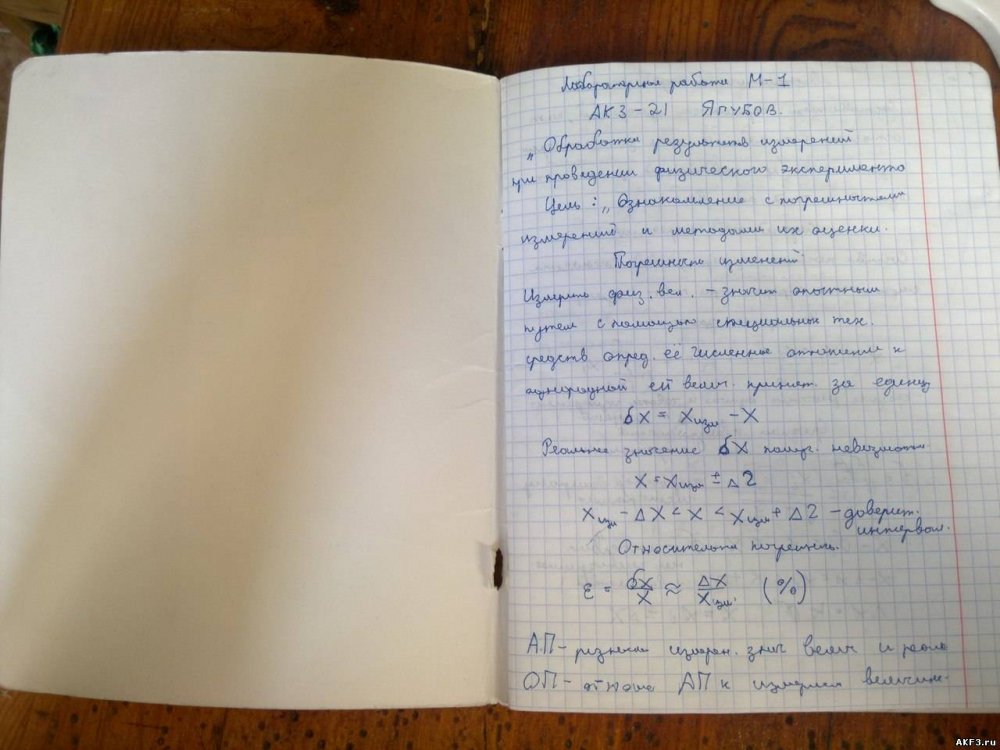 Лабораторная работа М-1
АК3-21 ЯГУБОВ.
„Обработка результатов измерений
при проведении физического эксперимента
Цель: „Ознакомление с погрешностями
измерений и методами их оценки.
Погрешность изменений
Измерить физ. вел. – значит опытным
путем с помощью специальных тех.
средств опред. её численное отношение к
однородной ей велич. принят. за единиц
δX = Xизм – X
Реальное значение δX получ. невозможн.
X = Xизм ± Δ2
Xизм – ΔX < X < Xизм + Δ2 – доверит.
интервал.
Относительная погрешнось.
ε = δX/X ≈ ΔX/Xизм. (%)
А.П – разница измерен. знач велич и реаль
ОП – АП к измерен величин.
AKF3.ru